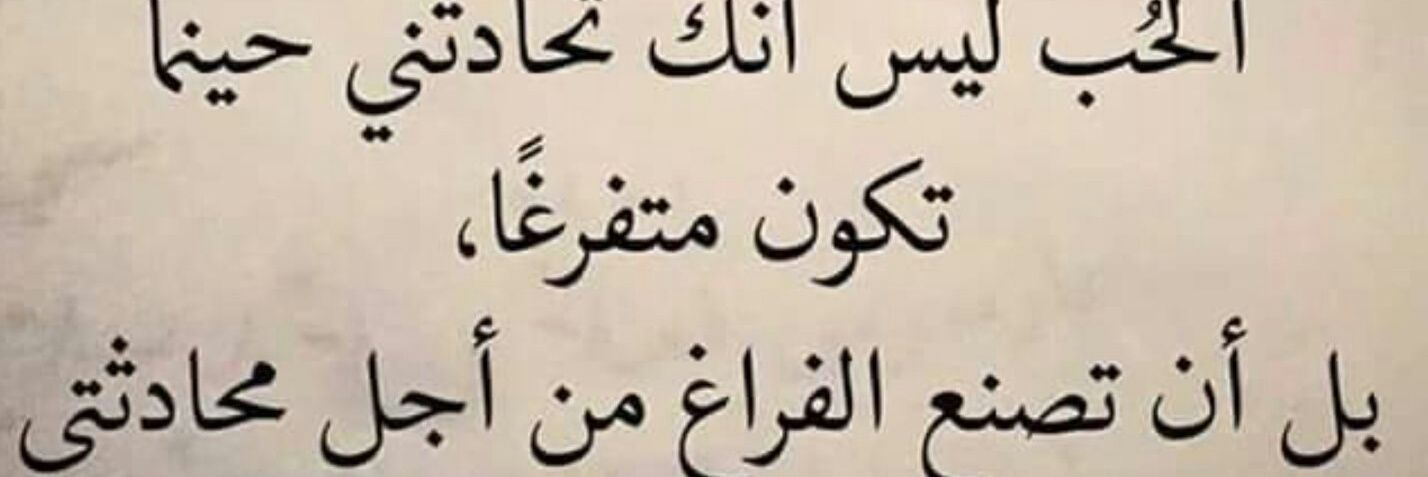 الحُب ليس أنك تحادثني حينما
تكون متفرغًا،
بل أن تصنع الفراغ من أجل محادثتي